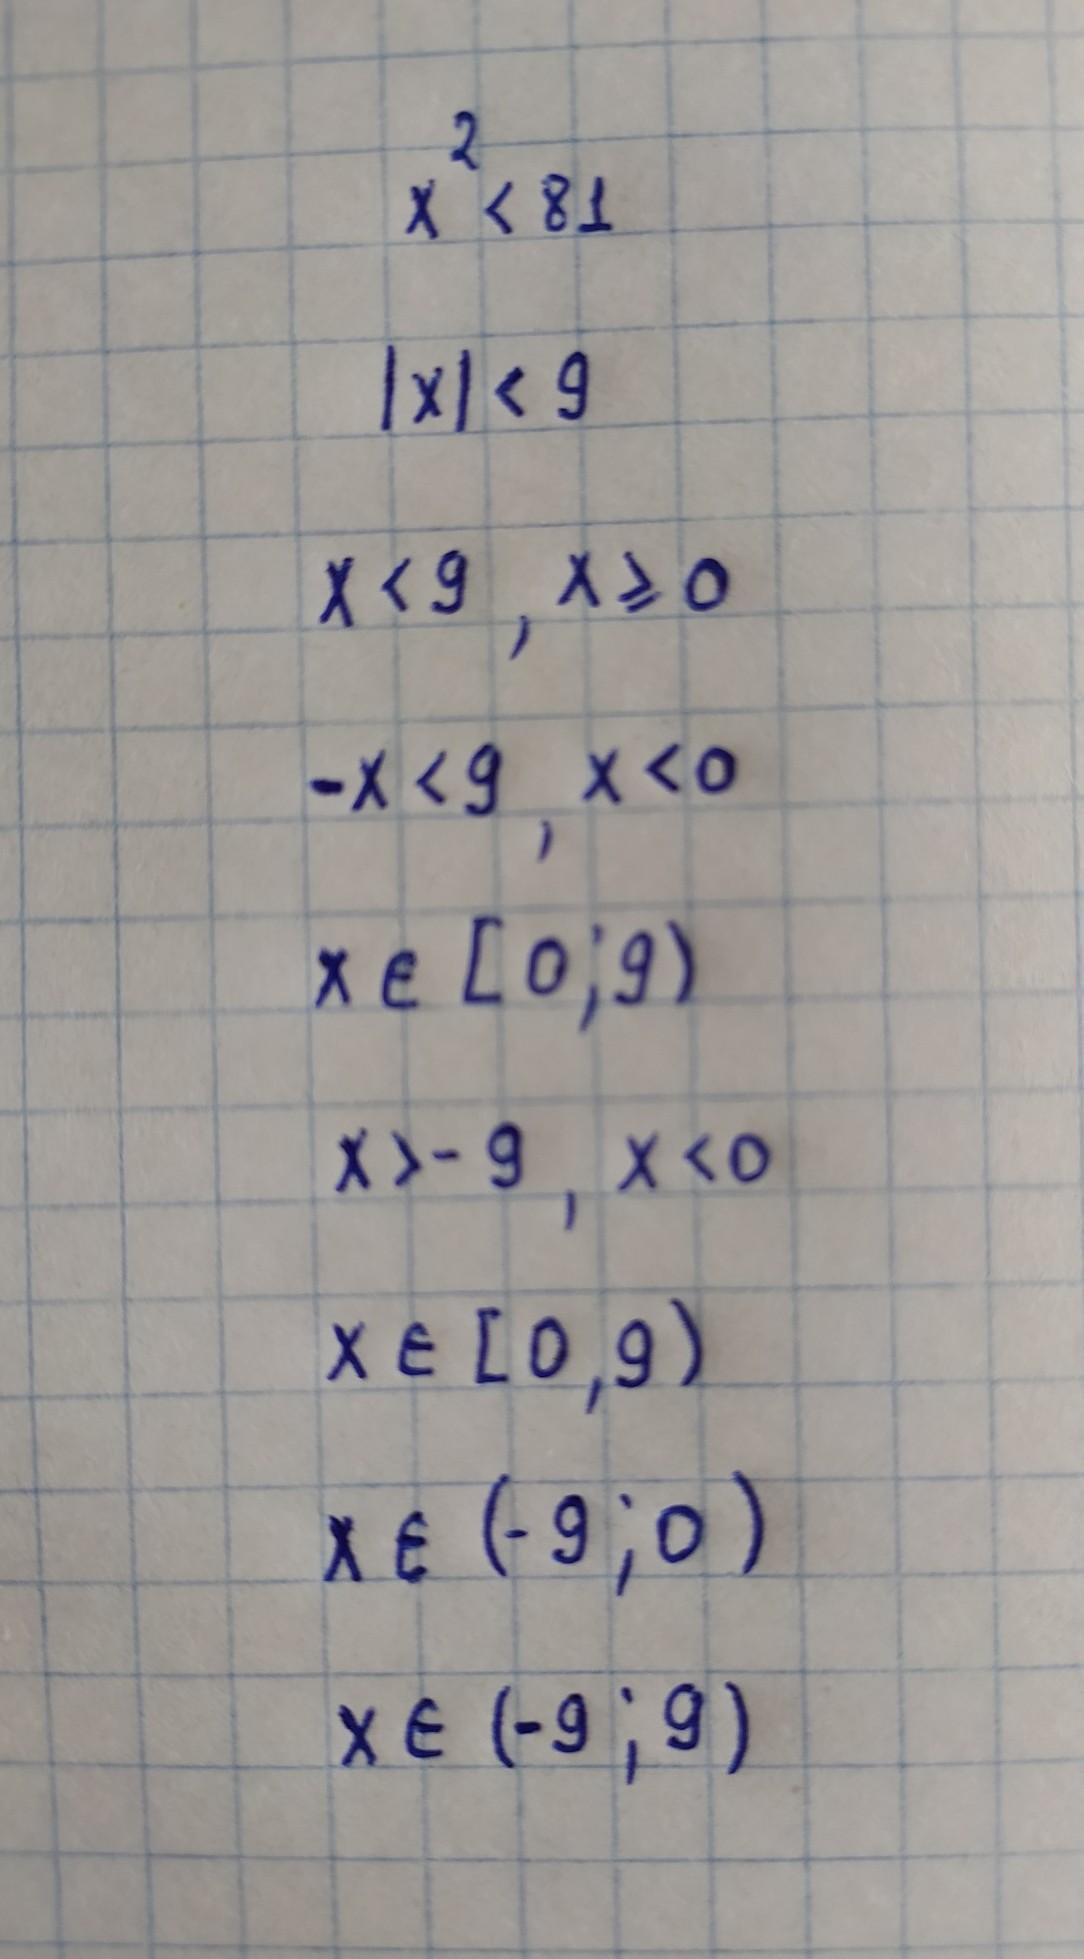 x² < 81
|x| < 9
x < 9, x ⩾ 0
-x < 9, x < 0
x ∈ [0; 9)
x > -9, x < 0
x ∈ [0, 9)
x ∈ (-9; 0)
x ∈ (-9; 9)